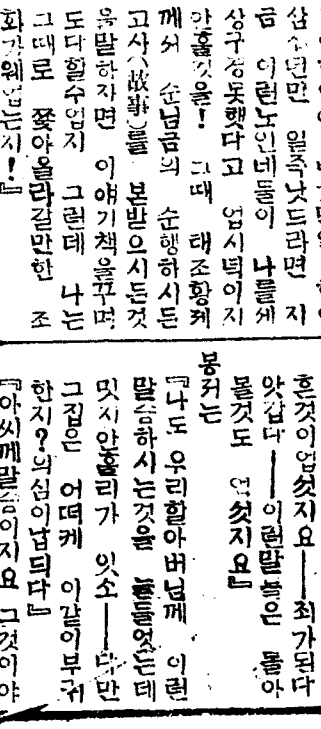 삼십년만 일즉낫드라면 지
금 이런노인네들이 나를세
상구경못햇다고 업시녁이지
안흘것을! 그때 태조황제
께서 순님금의 순행하시든
고사(故事)를 본받으시든것
을말하자면 이얘기책을꾸며
도다할수업지 그런데 나는
그때로 쫓아올라갈만한 조
화가웨업는지!』
흔것이업섯지요──죄가된다
앗갑다──이런말들은 몰아
볼것도 업섯지요』
봉저는
『나도 우리할아버님께 이런
말슴하시는것을 늘들엇는데
밋지안흘리가 잇소──다만
그집은 어떠케 이같이부귀
한지?의심이납듸다』
『아씨께말슴이지요 그것이야